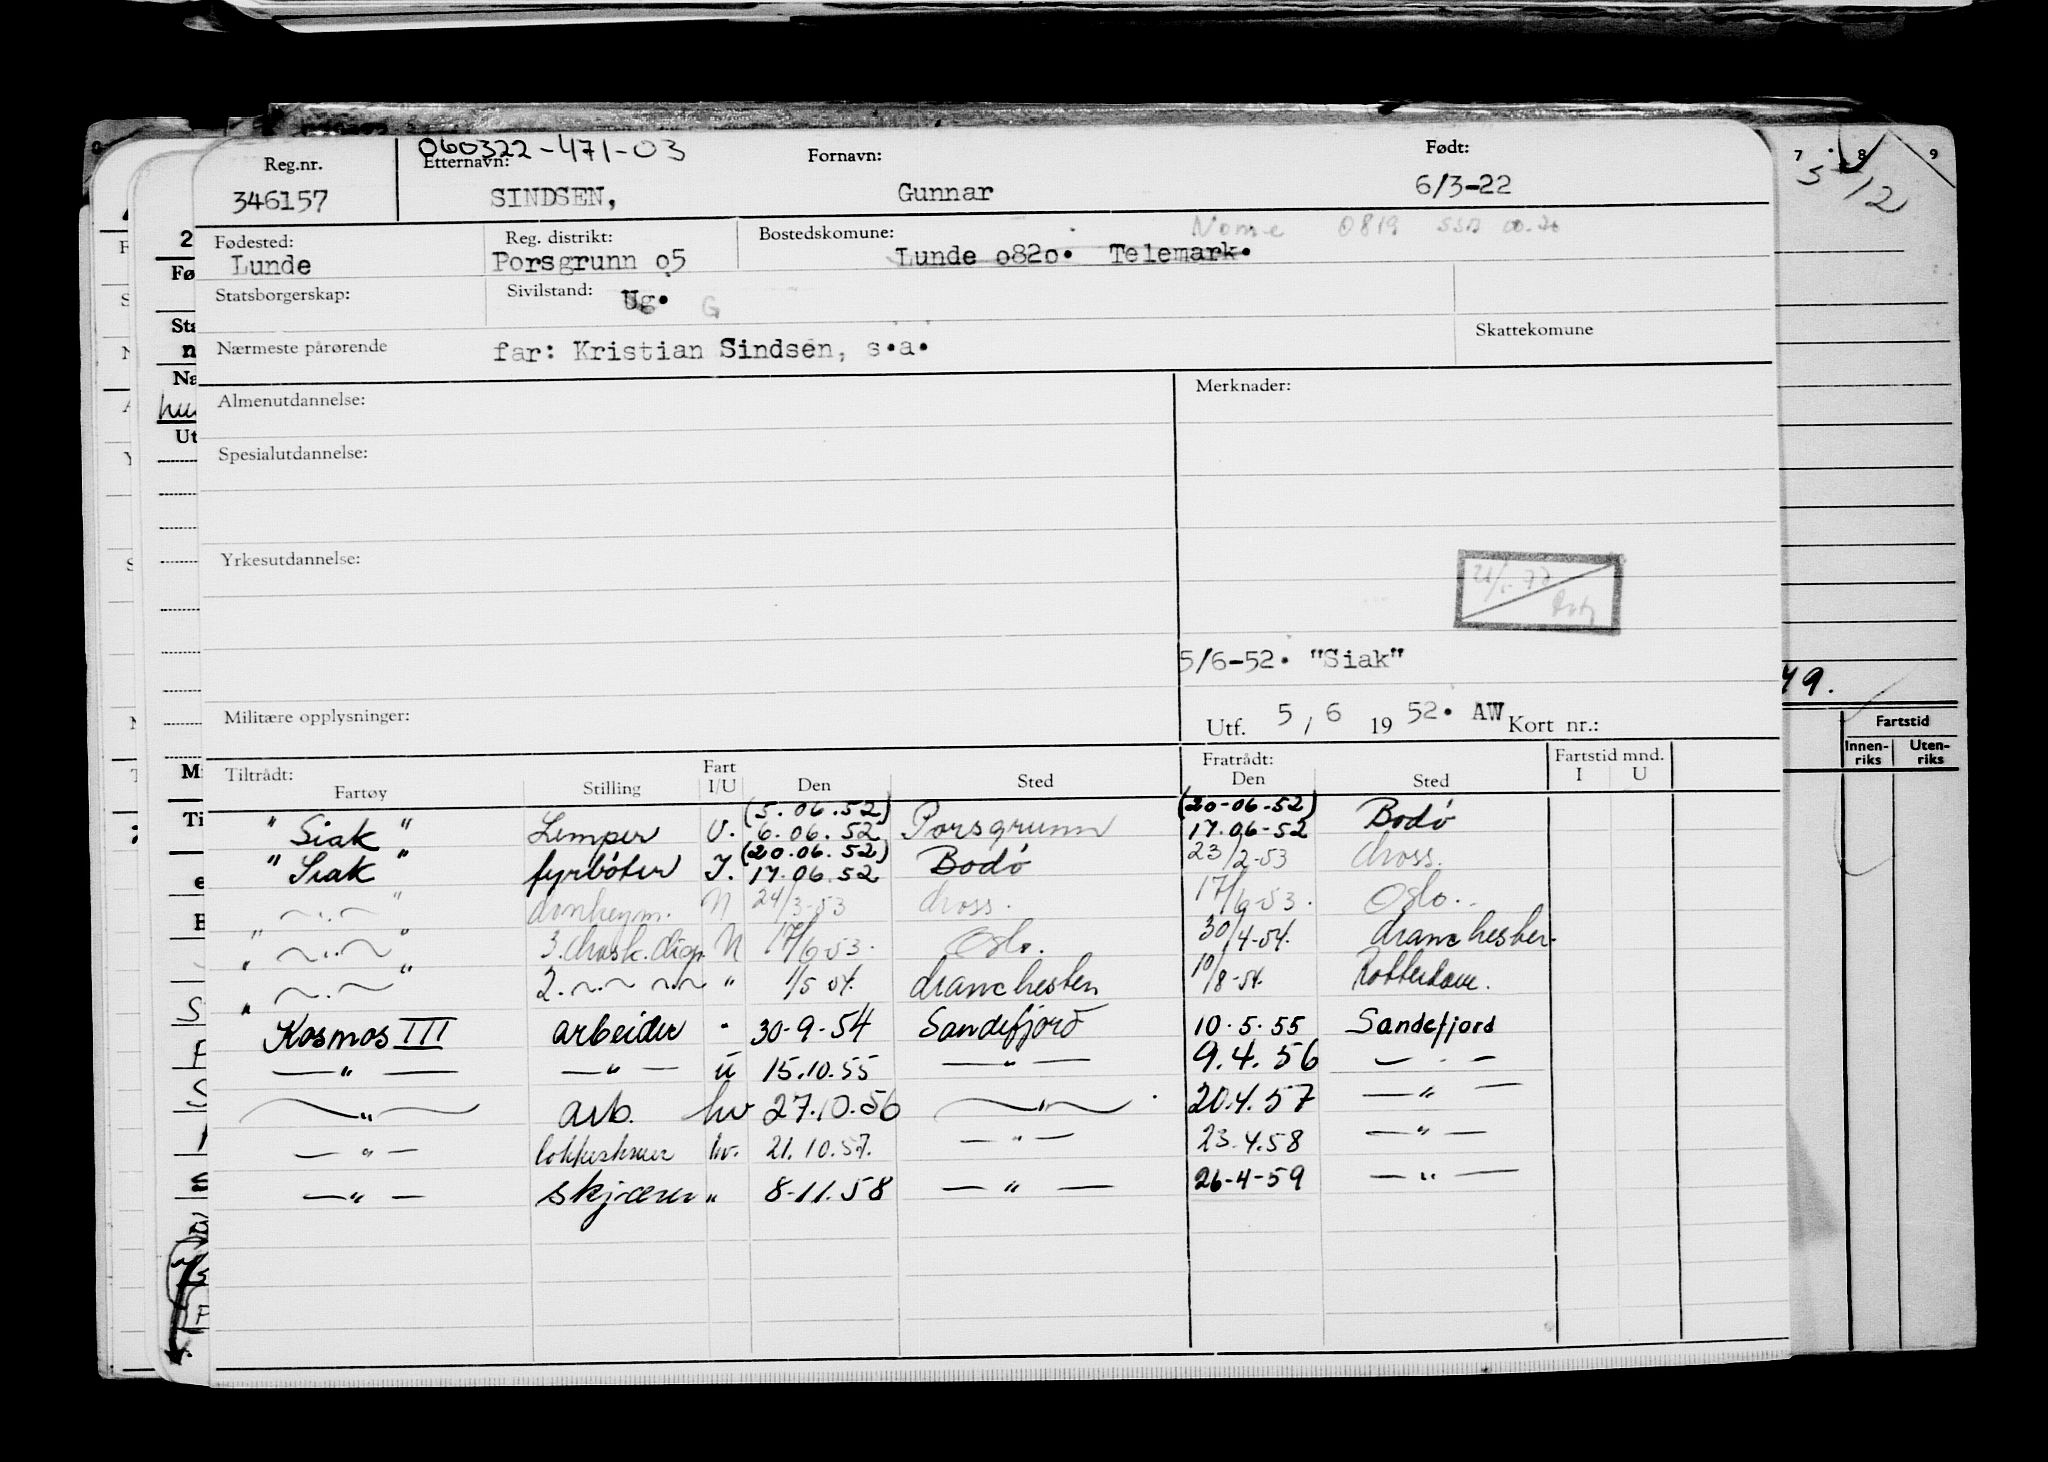 060322-471-03
Reg.nr. Etternavn: Fornavn: Født:
346157 SINDSEN, Gunnar 6/3-22
Nome 0819
Fødested: Reg. distrikt: Bostedskomune:
Lunde Porsgrunn o5 Lunde o82o. Telemark.
Statsborgerskap: Sivilstand: Ug. G
Skattekomune
Nærmeste pårørende far: Kristian Sindsen, s.a.
Almenutdannelse: Merknader:
Spesialutdannelse:
Yrkesutdannelse:
5/6-52. "Siak"
Militære opplysninger: Utf. 5 / 6 19 52. AW Kort nr.:
Tiltrådt: Fart Fratrådt: Fartstid mnd.
Fartøy Stilling I/U Den Sted Den Sted I U
(5.06.52) (20-06-52)
"Siak" Lemper U. 6.06.52 Porsgrunn 17.06-52 Bodø
(20.06.52)
"Siak" fyrbøter I. 17.06.52 Bodø 23/2-53 Moss.
" — " — " donkeym. N 24/3-53 Moss. 17/6-53. Oslo.
" — " — " 3. Mask. N 17/6-53. Oslo. 30/4-54. Manchester.
" — " — " 2. — " — " 1/5 54. Manchester 10/8-54. Rotterdam.
Kosmos III arbeider " 30-9-54 Sandefjord 10.5.55 Sandefjord
— " — — " — u 15.10.55 — " — 9.4.56 — " —
— " — arb. hv 27.10.56 — " — 20.4.57 — " —
— " — hv. 21.10.57. — " — 23.4.58 — " —
— " — skjærer " 8-11.58 — " — 26-4-59 — " —
7 8 9
49.
Fartstid
Innen-riks Uten-riks